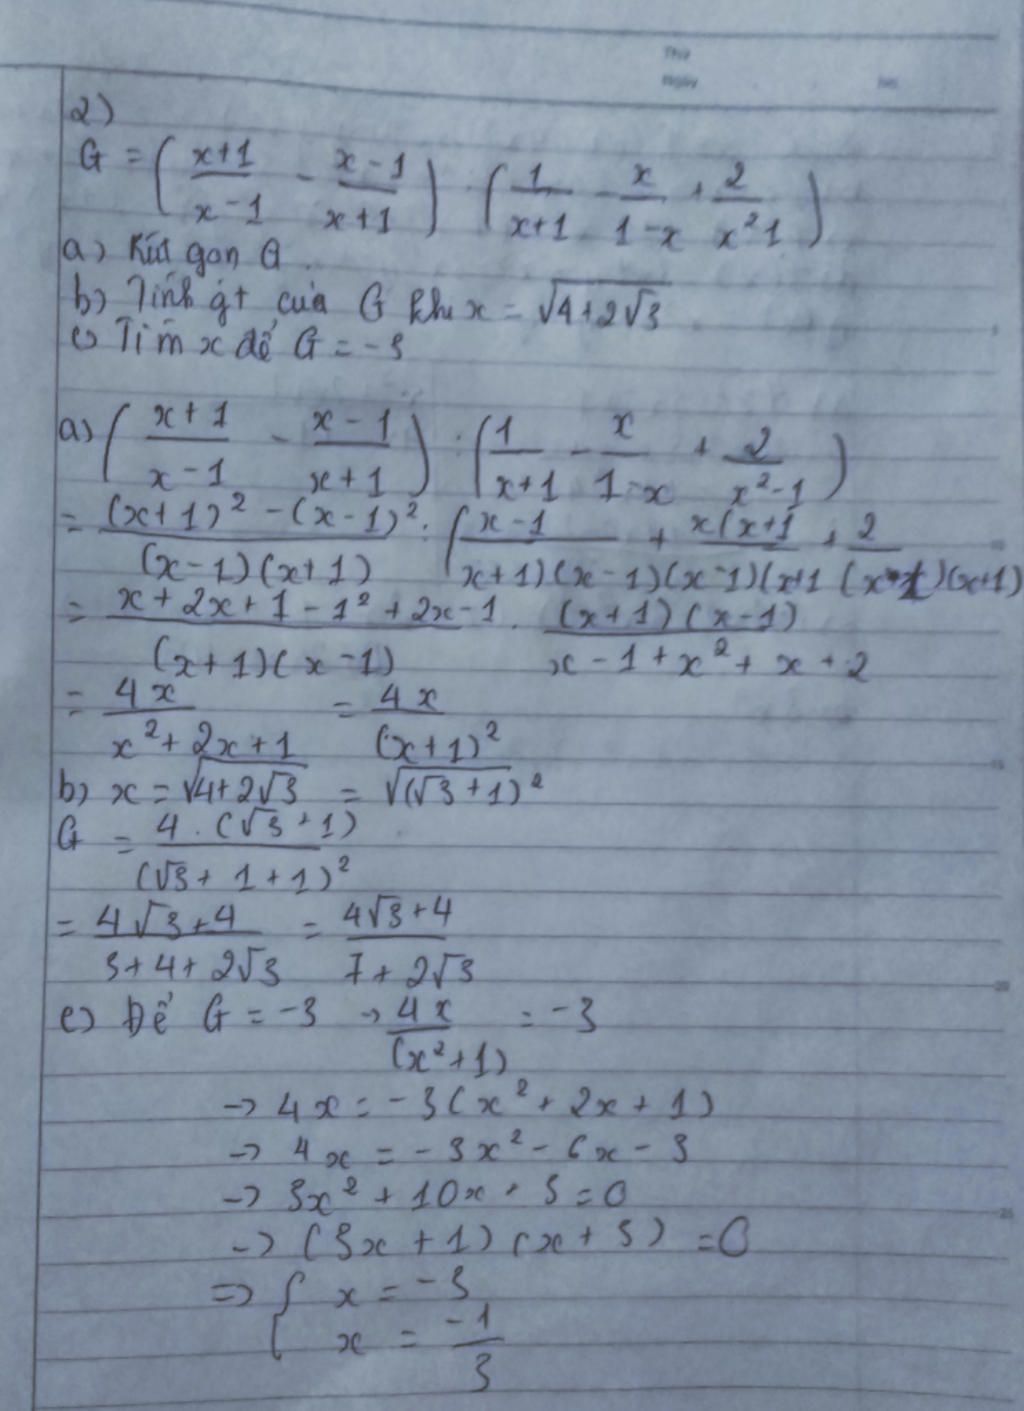 Thứ
Ngày
No.
2)
G = ( x+1 / x-1 - x-1 / x+1 ) : ( 1 / x+1 - x / 1-x + 2 / x² 1 )
a) Rút gọn G.
b) Tính gt của G khi x = √4+2√3
c) Tìm x để G = -3
a) ( x+1 / x-1 - x-1 / x+1 ) : ( 1 / x+1 - x / 1-x + 2 / x²-1 )
= (x+1)² - (x-1)² / (x-1)(x+1) : ( x-1 / x+1)(x-1) + x(x+1 / (x-1)(x+1 + 2 / (x-1)(x+1)
= x+2x+1-1²+2x-1 / (x+1)(x-1) . (x+1)(x-1) / x-1+x²+x+2
= 4x / x²+2x+1 = 4x / (x+1)²
b) x = √4+2√3 = √(√3+1)²
G = 4.(√3+1) / (√3+1+1)²
= 4√3+4 / 3+4+2√3 = 4√3+4 / 7+2√3
c) Để G = -3 → 4x / (x²+1) = -3
→ 4x = -3(x²+2x+1)
→ 4x = -3x²-6x-3
→ 3x²+10x+3=0
→ (3x+1)(x+3)=0
⇒ { x = -3
x = -1 / 3